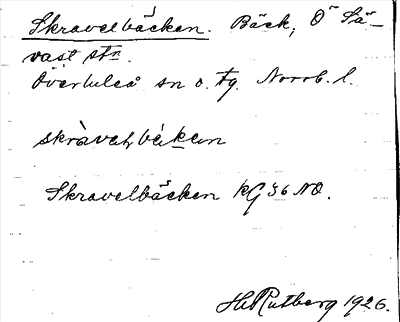 Skravelbäcken. Bäck, Ö Sä-
vast stn.
Överluleå sn o. tg. Norrb. l.
skràvəl,bɛ̀kən
Skravelbäcken kG 36 NO.
H. Rutberg 1926.